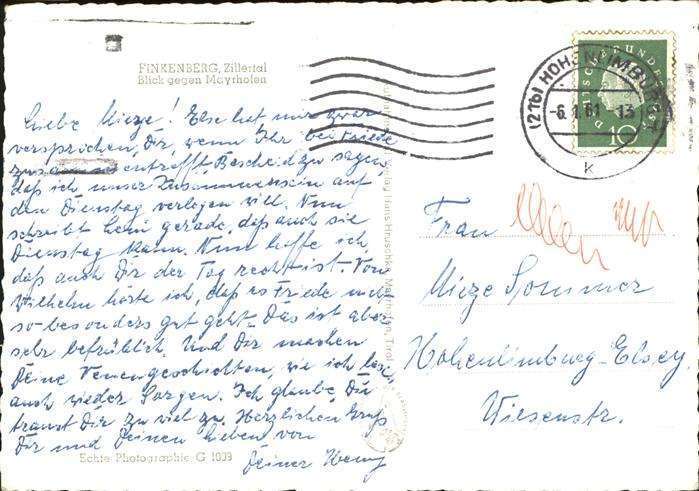 FINKENBERG, Zillertal
Blick gegen Mayrhofen
Liebe Mieze! Else hat mir zwar
versprochen, Dir, wenn Ihr bei Friede
zusammentrefft, Bescheid zu sagen,
daß ich unser Zusammensein auf
den Dienstag verlegen will. Nun
schreibt gerade, daß auch sie
Dienstag kann. Nun hoffe ich,
daß auch Dir der Tag recht ist. Von
Wilhelm hörte ich, daß es Friede nicht
so besonders gut geht. Das ist aber
sehr betrüblich. Und Dir machen
Deine Venengeschichten, wie ich lese,
auch wieder Sorgen. Ich glaube, Du
traust Dir zu viel zu. Herzlichen Gruß
Dir und Deinen Lieben von
Deiner
Echte Photographie G 1039
Verlag Hans Hruschka, Mayrhofen, Tirol
(21b) HOHENLIMBURG
-6.1.61-13
k
DEUTSCHE BUNDESPOST
10
Frau
Mieze Sommer
Hohenlimburg-Elsey
Wiesenstr.